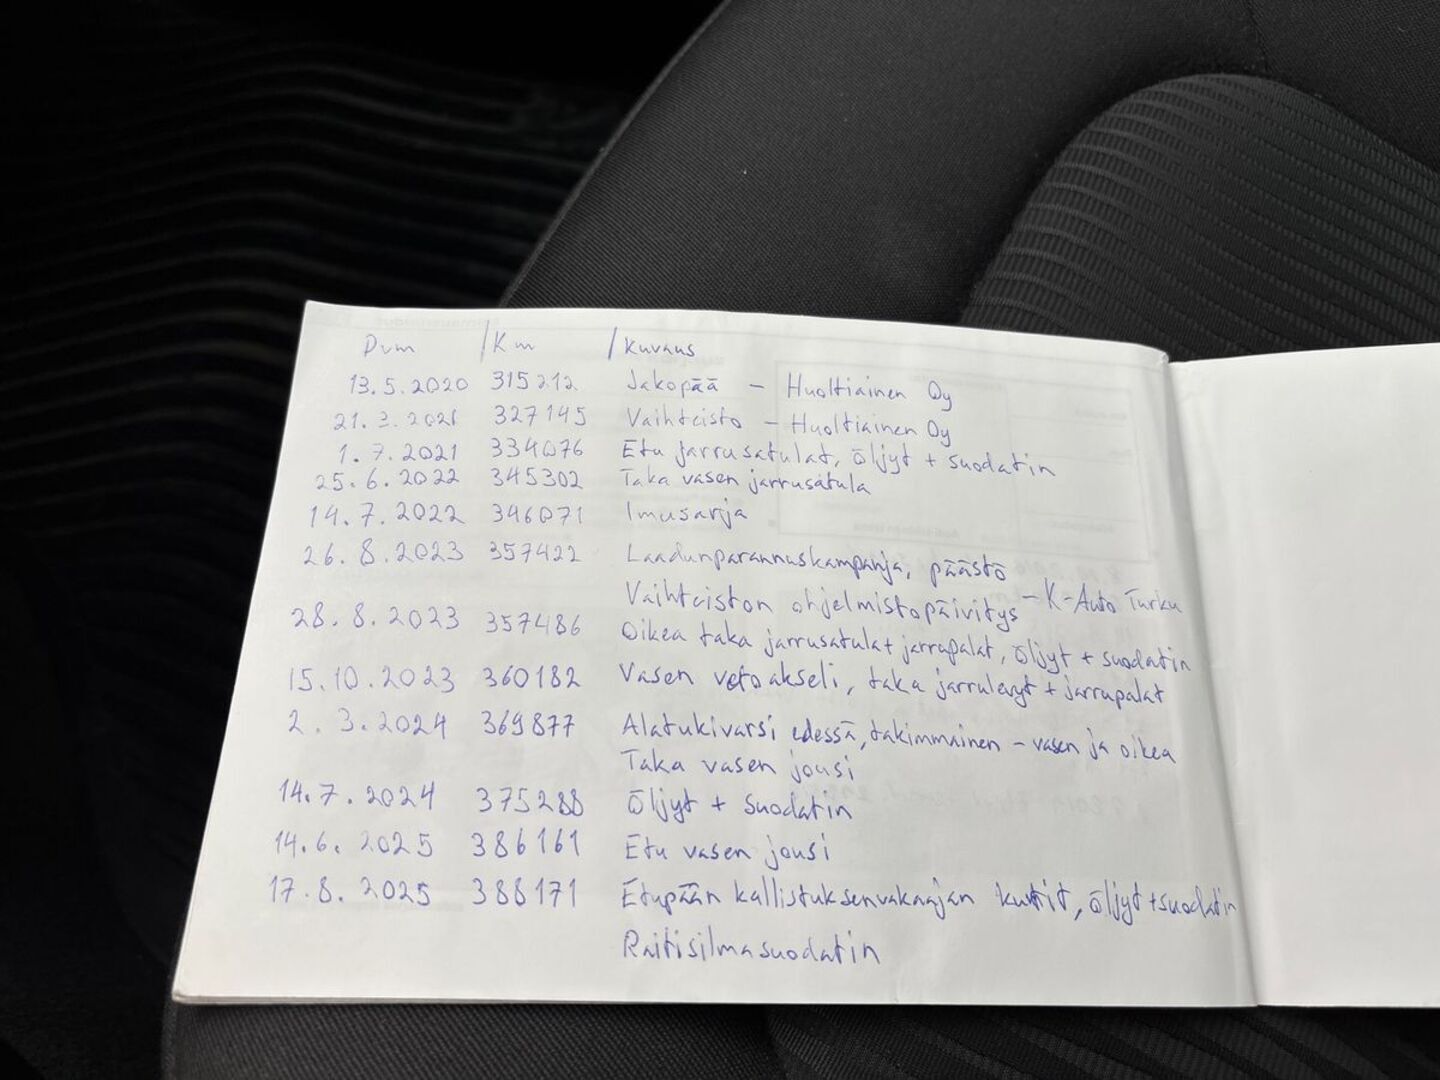 Pvm / Km / Kuvaus
13.5.2020 315212 Jakopää - Huoltiainen Oy
21.3.2021 327145 Vaihteisto - Huoltiainen Oy
1.7.2021 334076 Etu jarrusatulat, öljyt + suodatin
25.6.2022 345302 Taka vasen jarrusatula
14.7.2022 346071 Imusarja
26.8.2023 357422 Laadunparannuskampanja, päästö
Vaihteiston ohjelmistopäivitys - K-Auto Turku
28.8.2023 357486 Oikea taka jarrusatula + jarrupalat, öljyt + suodatin
15.10.2023 360182 Vasen vetoakseli, taka jarrulevyt + jarrupalat
2.3.2024 369877 Alatukivarsi edessä, takimmainen - vasen ja oikea
Taka vasen jousi
14.7.2024 375288 Öljyt + suodatin
14.6.2025 386161 Etu vasen jousi
17.8.2025 388171 Etupään kallistuksenvakaajan kumit, öljyt + suodatin
Raitisilmasuodatin